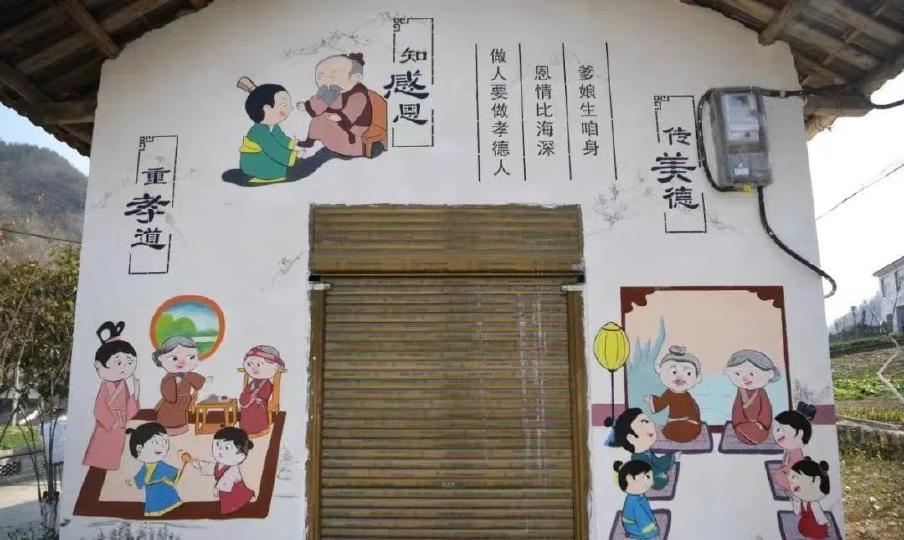 知感恩
爹娘生咱身
恩情比海深
做人要做孝德人
传美德
重孝道